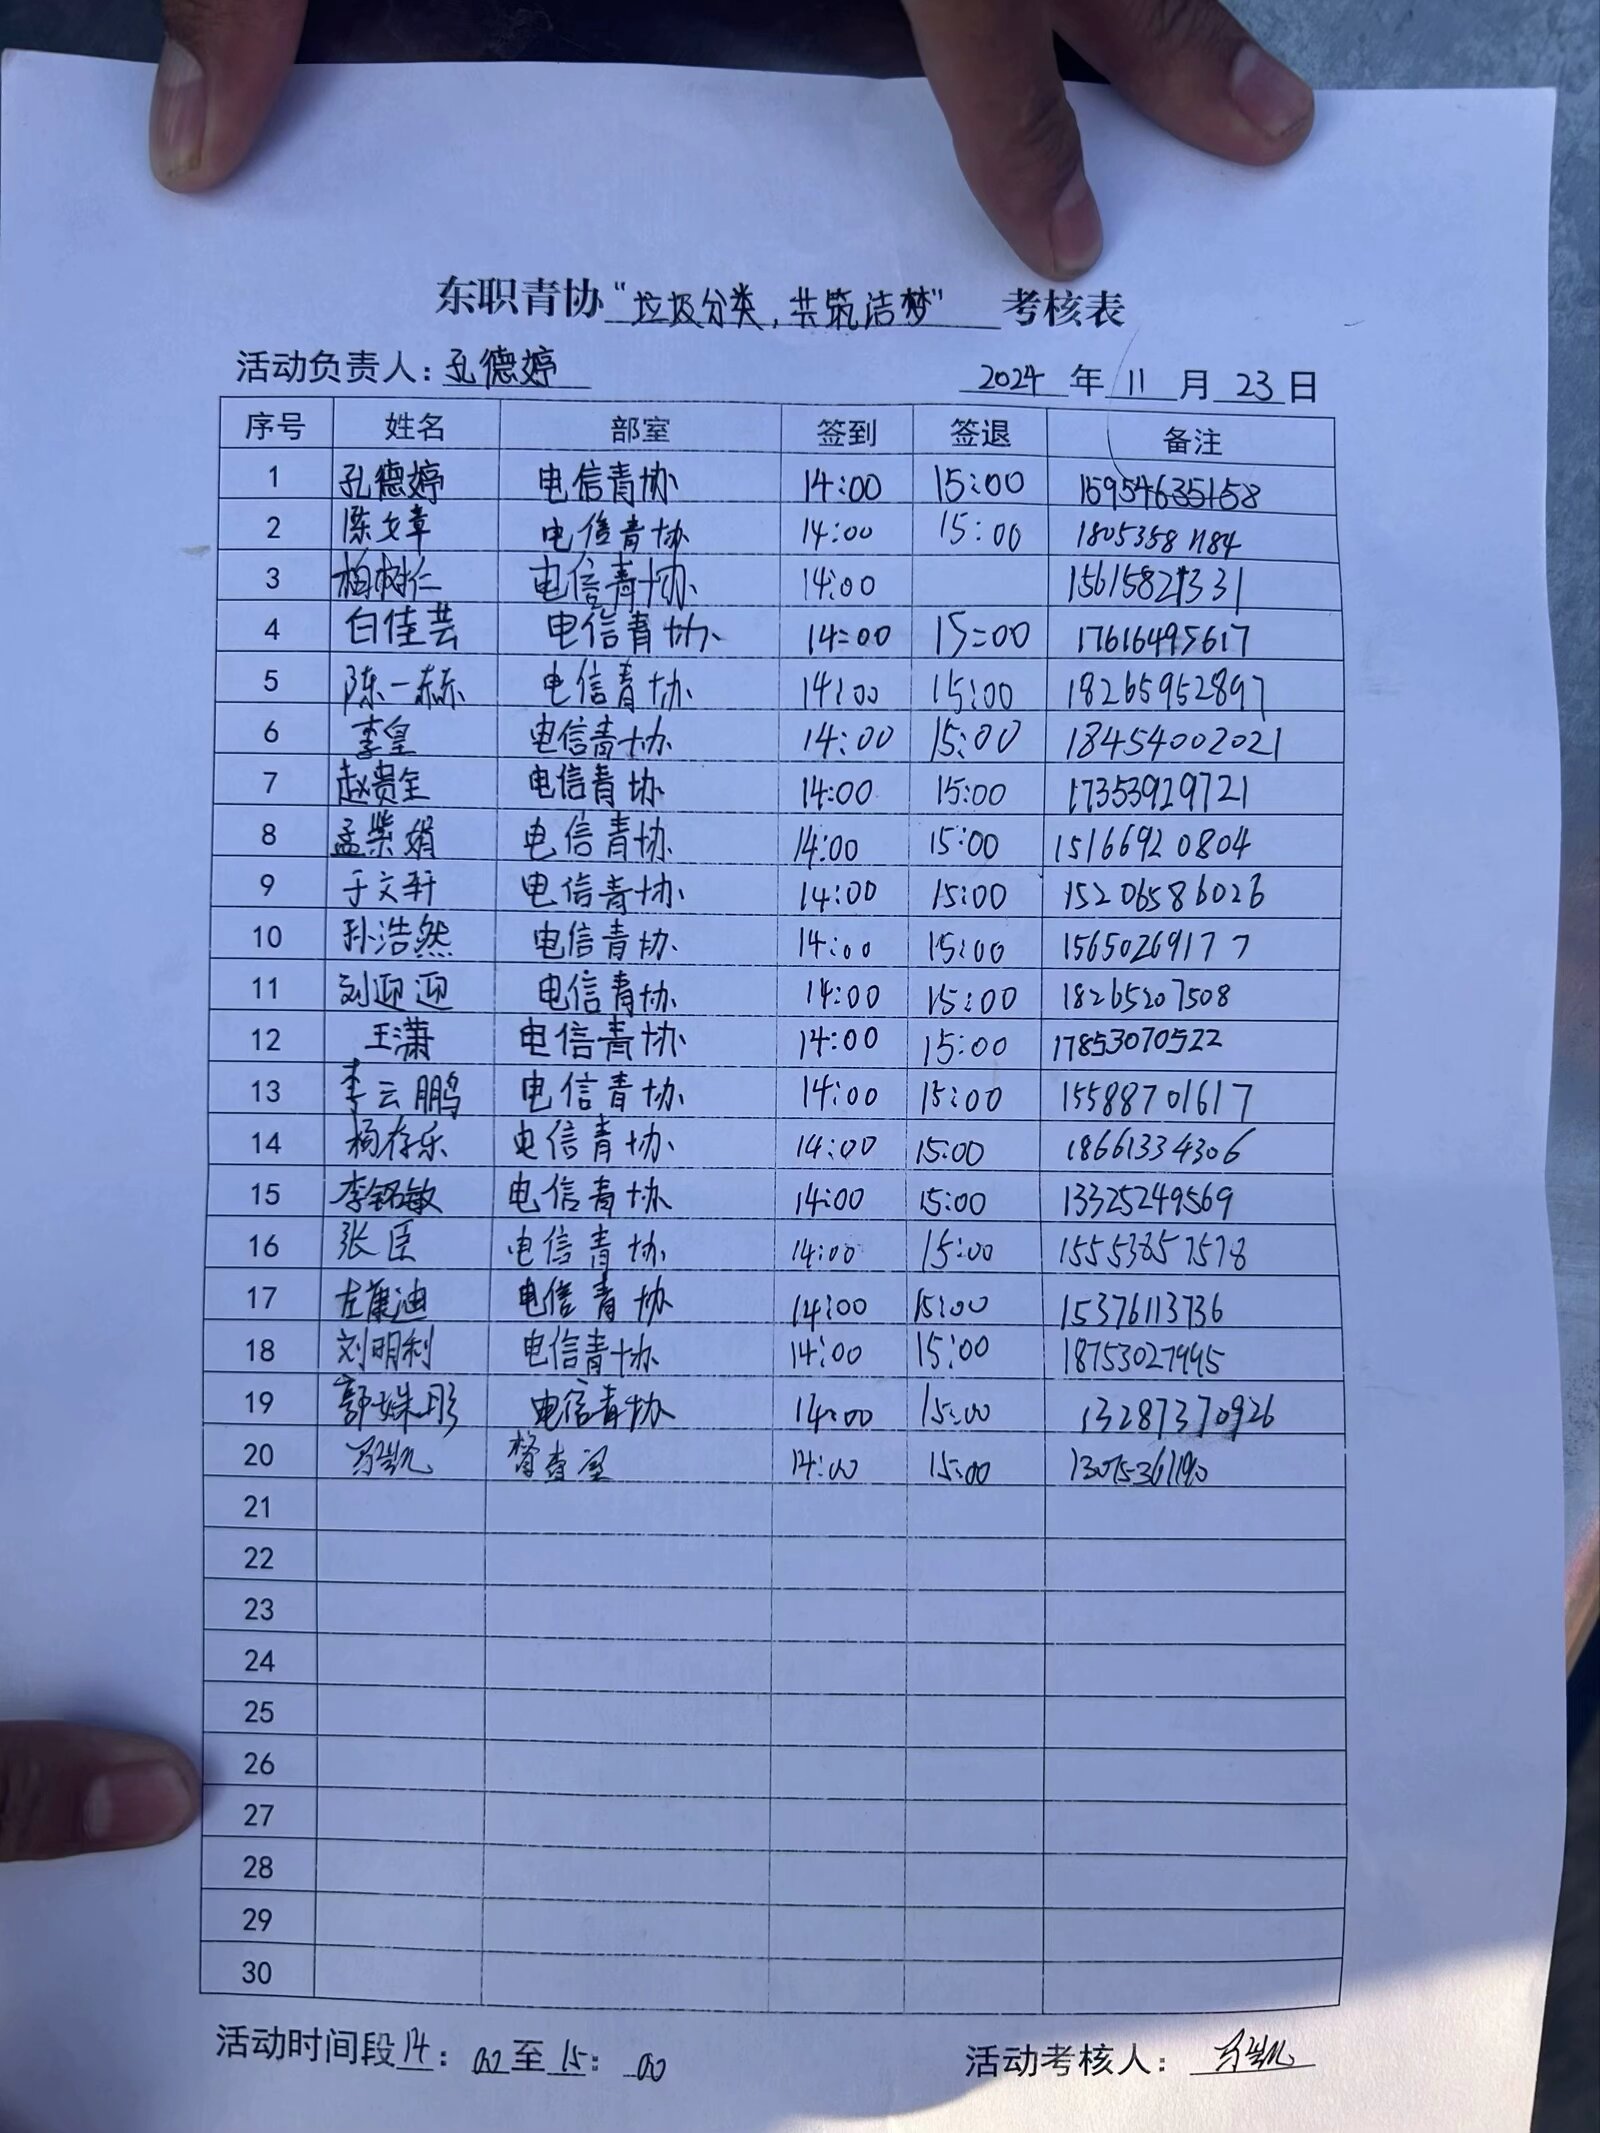 东职青协“垃圾分类,共筑洁梦” 考核表
活动负责人:孔德婷 2024 年 11 月 23 日
序号 姓名 部室 签到 签退 备注
1 孔德婷 电信青协 14:00 15:00 15954635158
2 陈文章 电信青协 14:00 15:00 18053581184
3 柏树仁 电信青协 14:00 15615821331
4 白佳芸 电信青协 14:00 15:00 17616495617
5 陈一赫 电信青协 14:00 15:00 18265952897
6 李皇 电信青协 14:00 15:00 18454002021
7 赵贵全 电信青协 14:00 15:00 17353929721
8 孟紫娟 电信青协 14:00 15:00 15166920804
9 于文轩 电信青协 14:00 15:00 15206586026
10 孙浩然 电信青协 14:00 15:00 15650269177
11 刘迎迎 电信青协 14:00 15:00 18265207508
12 王潇 电信青协 14:00 15:00 17853070522
13 李云鹏 电信青协 14:00 15:00 15588701617
14 杨存乐 电信青协 14:00 15:00 18661334306
15 李铭敏 电信青协 14:00 15:00 13325249569
16 张臣 电信青协 14:00 15:00 15553857578
17 左康迪 电信青协 14:00 15:00 15376113736
18 刘明利 电信青协 14:00 15:00 18753027995
19 郭姝彤 电信青协 14:00 15:00 13287370926
20 督查室 14:00 15:00 13075361190
21
22
23
24
25
26
27
28
29
30
活动时间段14:00至15:00 活动考核人: